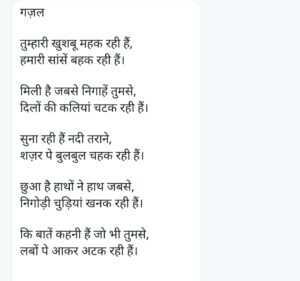 गज़ल
तुम्हारी खुशबू महक रही हैं,
हमारी सांसें बहक रही हैं।
मिली है जबसे निगाहें तुमसे,
दिलों की कलियां चटक रही हैं।
सुना रही हैं नदी तराने,
शज़र पे बुलबुल चहक रही हैं।
छुआ है हाथों ने हाथ जबसे,
निगोड़ी चुड़ियां खनक रही हैं।
कि बातें कहनी हैं जो भी तुमसे,
लबों पे आकर अटक रही हैं।